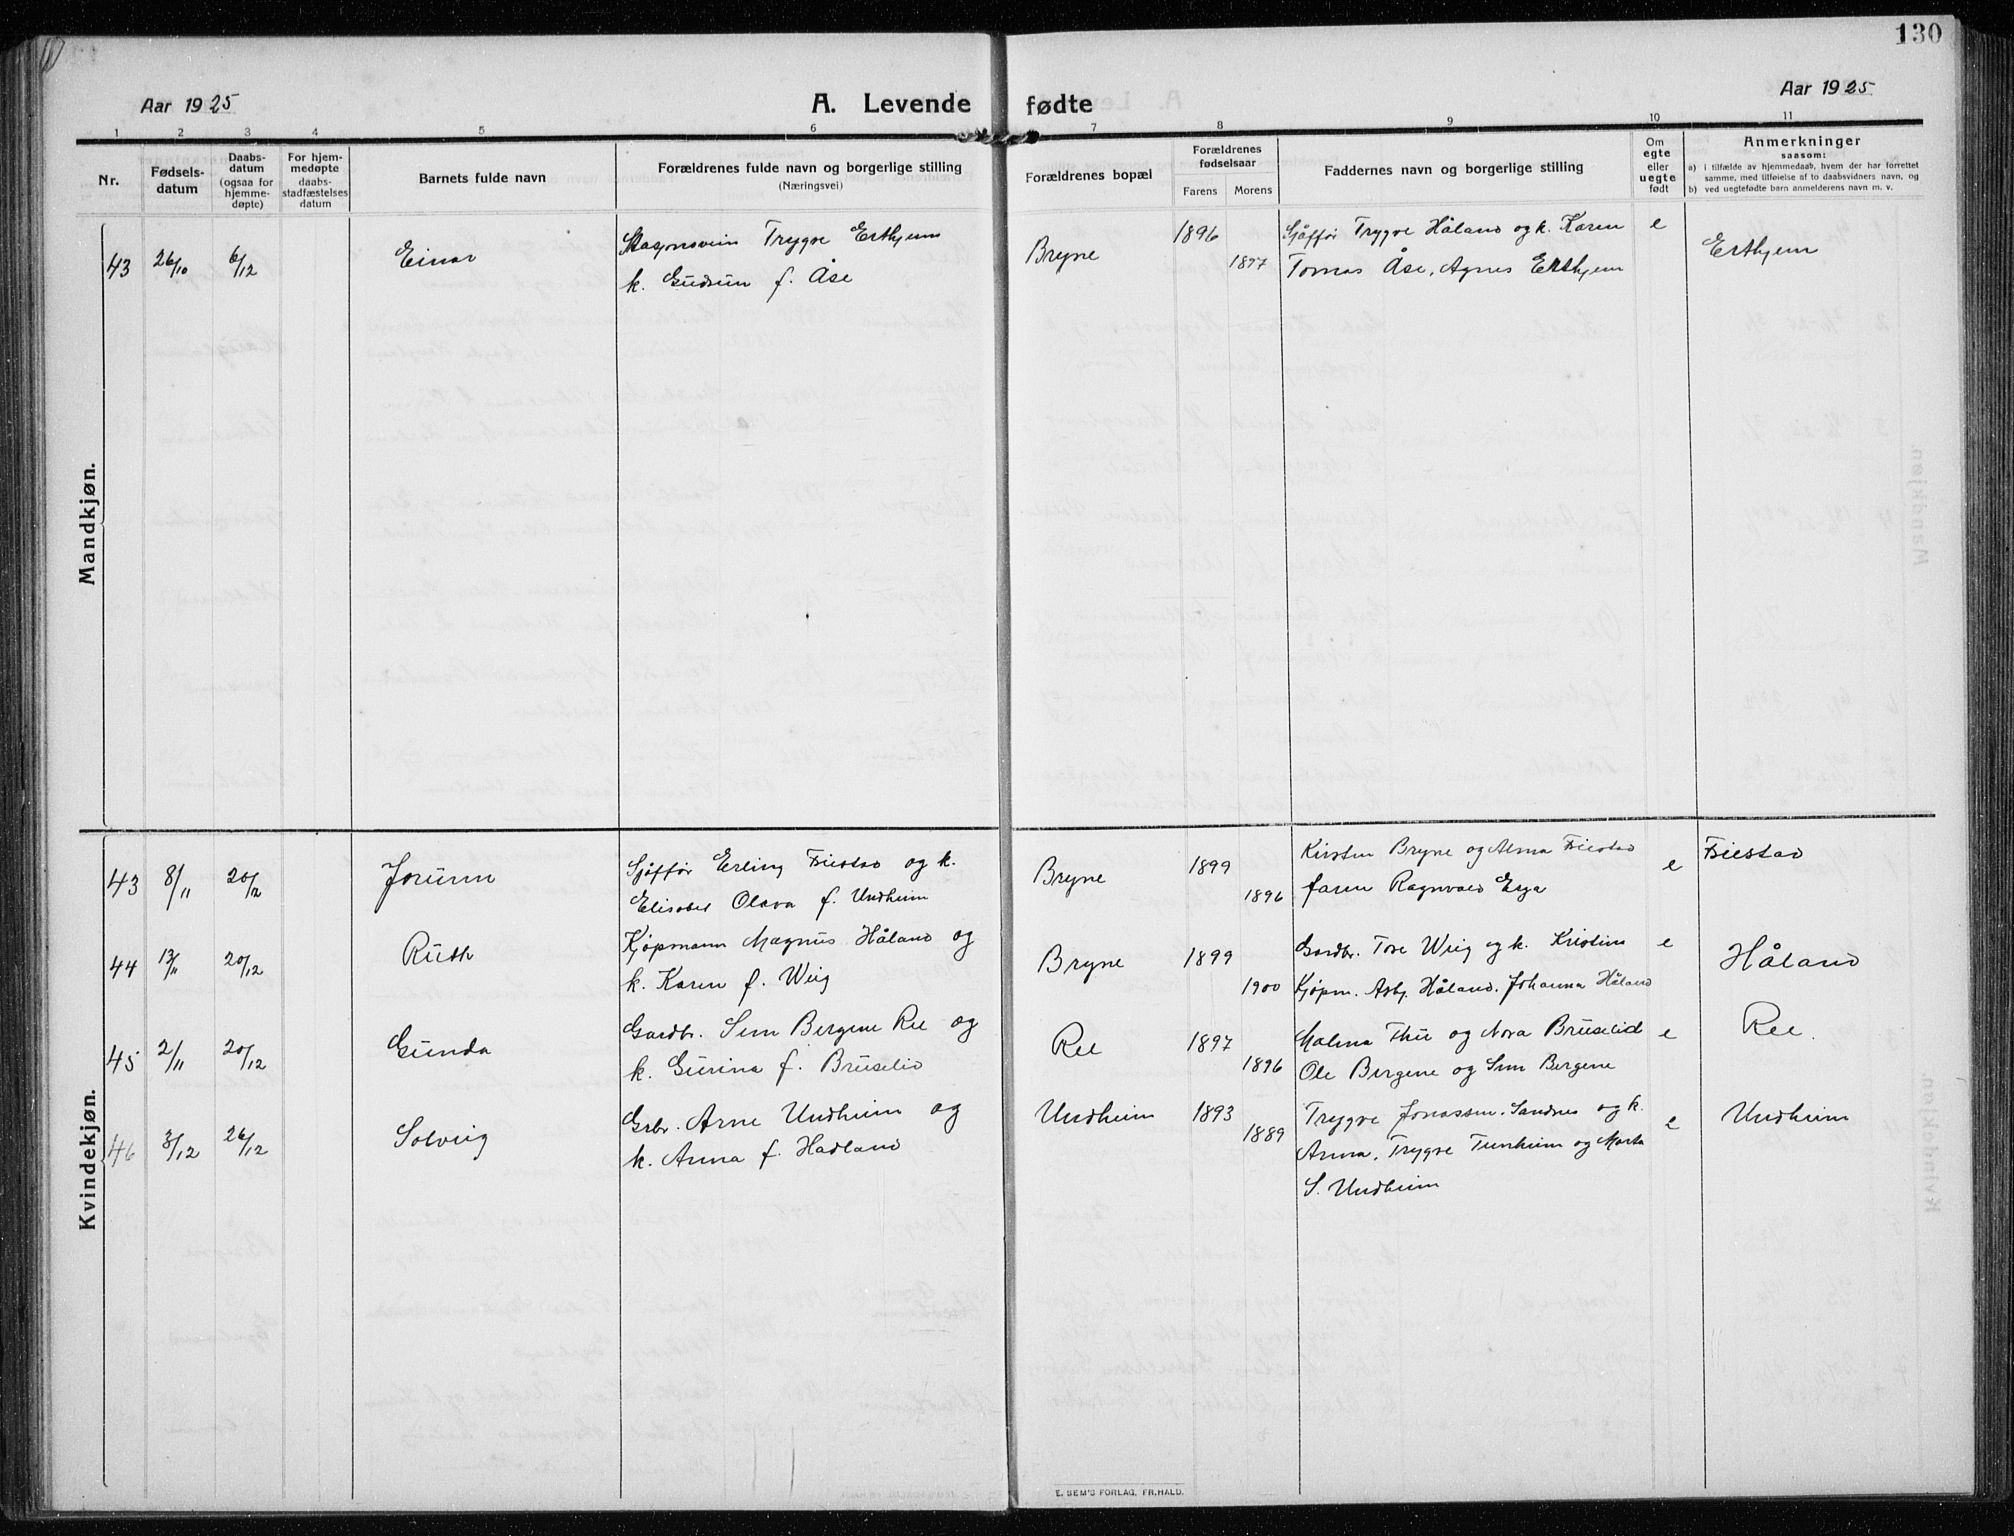 130
Aar 1925
A. Levende fødte
Aar 1925
1 2 3 4 5 6 7 8 9 10 11
Nr.
Fødsels-
datum
Daabs-
datum
(ogsaa for
hjemme-
døpte)
For hjem-
medøpte
daabs-
stadfæstelses
datum
Barnets fulde navn
Forældrenes fulde navn og borgerlige stilling
(Næringsvei)
Forældrenes bopæl
Forældrenes
fødselsaar
Farens Morens
Faddernes navn og borgerlige stilling
Om
egte
eller
uegte
født
Anmerkninger
saasom:
a) i tilfælde av hjemmedaab, hvem der har forrettet
samme, med tilføielse af to daabsvidners navn, og
b) ved uegtefødte barn anmelderens navn m. v.
Mandkjøn.
43 26/10 6/12 Einar
Trygve Erthjem
k. Gudrun f. Åse
Bryne 1896
1897
Sjåffør Trygve Håland og k. Karen
Tomas Åse, Agnes Erthjem
e Erthjem
Kvindekjøn.
43 8/11 20/12 Jorunn
Sjåffør Erling Friestad og k.
Elisabet Olava f. Undheim
Bryne 1899
1896
Kirsten Bryne og Alma Friestad
faren Ragnvald Erga
e Friestad
44 13/11 20/12 Ruth
Kjøpmann Magnus Håland og
k. Karen f. Wiig
Bryne 1899
1900
Gardbr. Tore Wiig og k. Kristine
Kjøpm. Asbj. Håland. Johanna Håland
e Håland
45 2/11 20/12 Gunda
Gardbr. Sem Bergene Ree og
k. Gurina f. Bruselid
Ree 1897
1896
Malena Thu og Nora Bruselid
Ole Bergene og Sem Bergene
e Ree.
46 3/12 26/12 Solveig
Grbr. Arne Undheim og
k. Anna f. Hadland
Undheim 1893
1889
Trygve Jonassen. Sandnes og k.
Anna, Trygve Tunheim og Marta
S. Undheim
e Undheim
E. SEM'S FORLAG, FR.HALD.